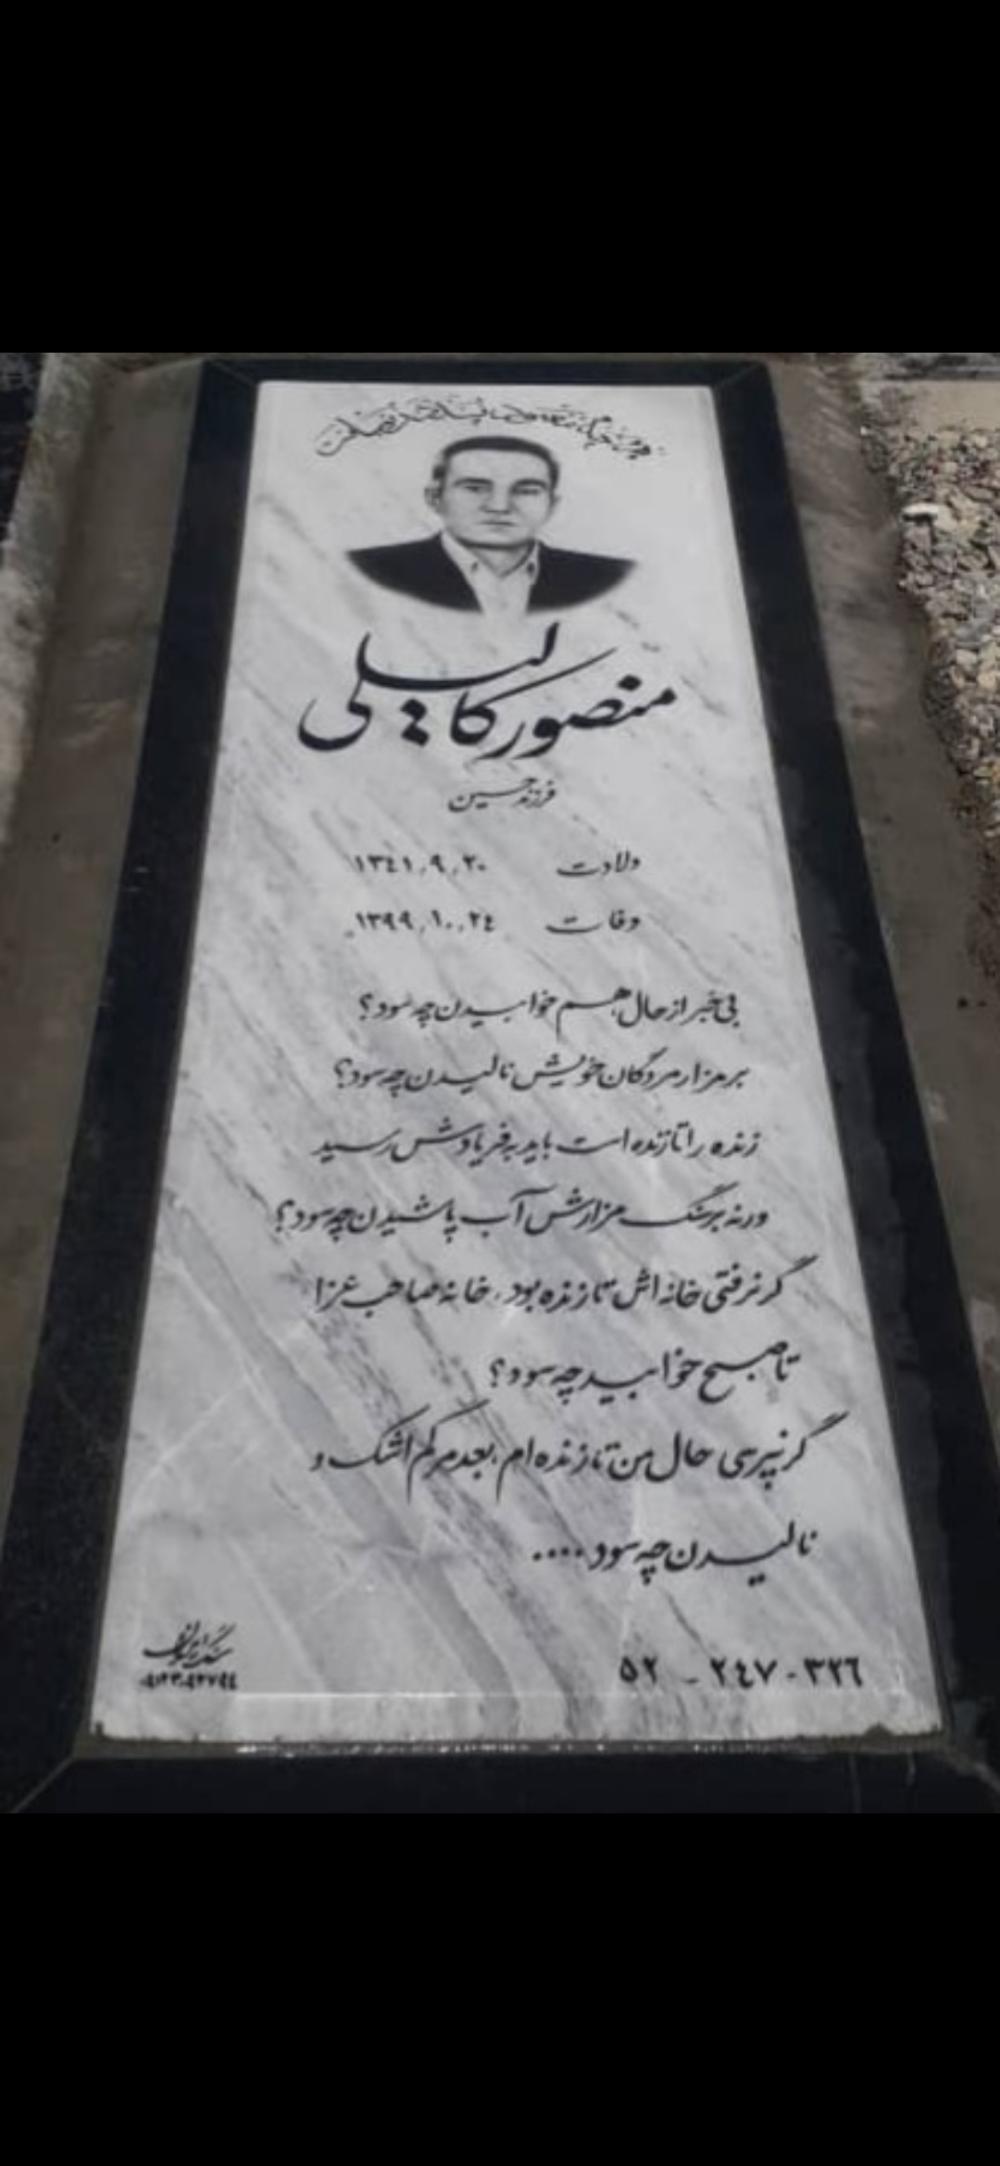 منصور کاییلی
فرزند حسین
ولادت ۱۳٤۱٫۹٫۲۰
وفات ۱۳۹۹٫۱۰٫۲٤
بی خبر از حال هم خوابیدن چه سود؟
بر مزار مردگان خویش نالیدن چه سود؟
زنده را تا زنده است باید به فریادش رسید
ورنه بر سنگ مزارش آب پاشیدن چه سود؟
گر نرفتی خانه اش تا زنده بود، خانه صاحب عزا
تا صبح خوابید چه سود؟
گر نپرسی حال من تا زنده ام، بعد مرگم اشک و
نالیدن چه سود....
۵۲ - ۲٤۷ - ۳۲٦